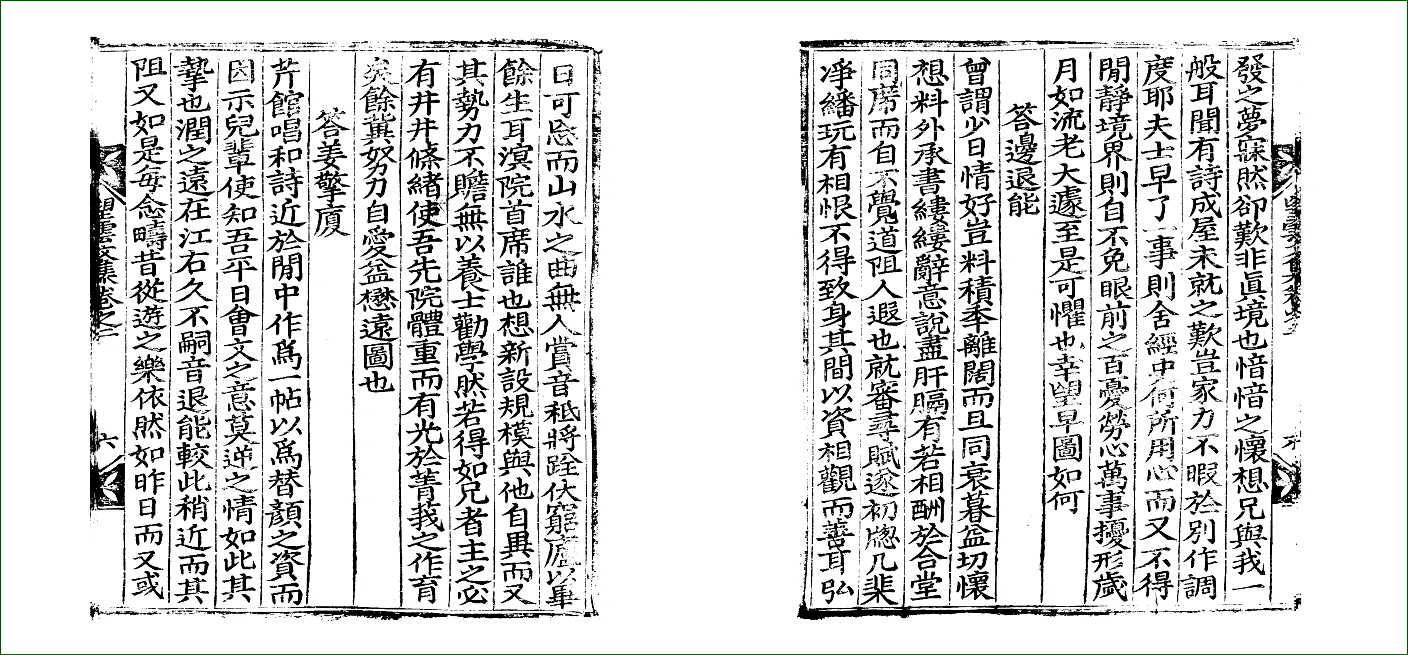 發之夢寐然卻歎非眞境也愔愔之懷想兄與我一
般耳聞有詩成屋未就之歎豈家力不暇於別作調
度耶夫士早了一事則舍經史何所用心而又不得
閒靜境界則自不免眼前之百憂勞心萬事擾形歲
月如流老大遽至是可懼也幸望早圖如何
答邊退能
曾謂少日情好豈料積年離闊而且同衰暮益切懷
想料外承書縷縷辭意說盡肝膈有若相酬於合堂
同席而自不覺道阻人遐也就審尋賦遂初牕几棐
凈繙玩有相恨不得致身其間以資相觀而善耳弘
日可忘而山水之曲無人賞音秪將跧伏窮廬以畢
餘生耳溟院首席誰也想新設規模與他自異而又
其勢力不贍無以養士勸學然若得如兄者主之必
有井井條緖使吾先院體重而有光於菁莪之作育
矣餘冀努力自愛益懋遠圖也
答姜擎廈
芹館唱和詩近於閒中作爲一帖以爲替顏之資而
因示兒輩使知吾平日會文之意莫逆之情如此其
摯也潤之遠在江右久不嗣音退能較此稍近而其
阻又如是每念疇昔從遊之樂依然如昨日而又或
望雲文集卷之二
六